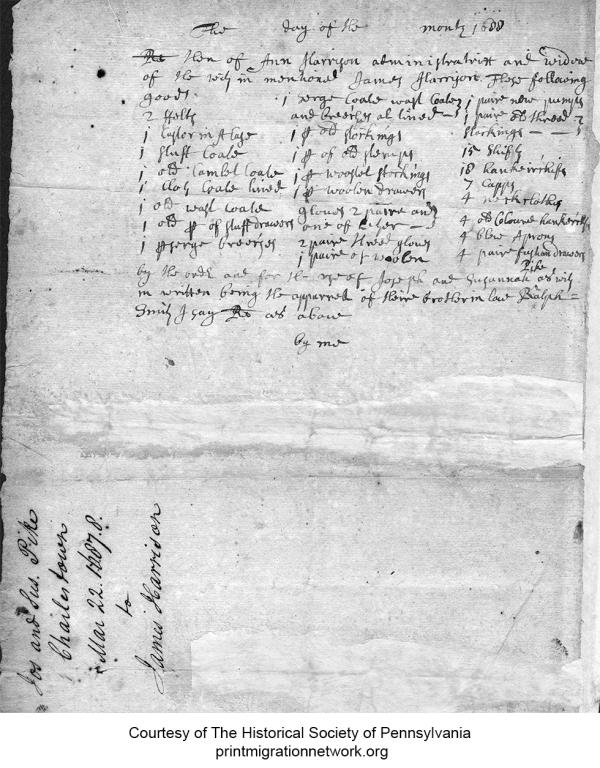 The day of the month 1688
Re then of Ann Harrison administratrix and widow
of the with in mentioned James Harrison. These following
goods. 1 serge Coate wast Coate 1 paire new pumps
2 Hatts and breeches al lined 1 paire old threed
1 1 pr old stockings stockings — — 1
1 stuff Coate 1 pr of old 15 shifts
1 old Camlet Coate 1 pr stockings 18 hankeirchifs
1 Cloth Coate lined 1 pr woolen drawers 7 Capps
1 old wast Coate gloves 2 paire and 4 neckcloths
1 old pr of stuff drawers one of — 4 old Coloured hankerchifs
1 pr serge breeches 2 paire threed gloves 4 blew Aprons
1 paire of woolen 4 paire fushan drawers
by the order and for the use of Joseph and Susannah Pike as with
in written being the apparrel of theire brother in law Ralph
Smith I say Re as above
by me
Jos and Sus. Pike
Charlestown
Mar 22. 1687.8.
to
James Harrison
Courtesy of The Historical Society of Pennsylvania
printmigrationnetwork.org